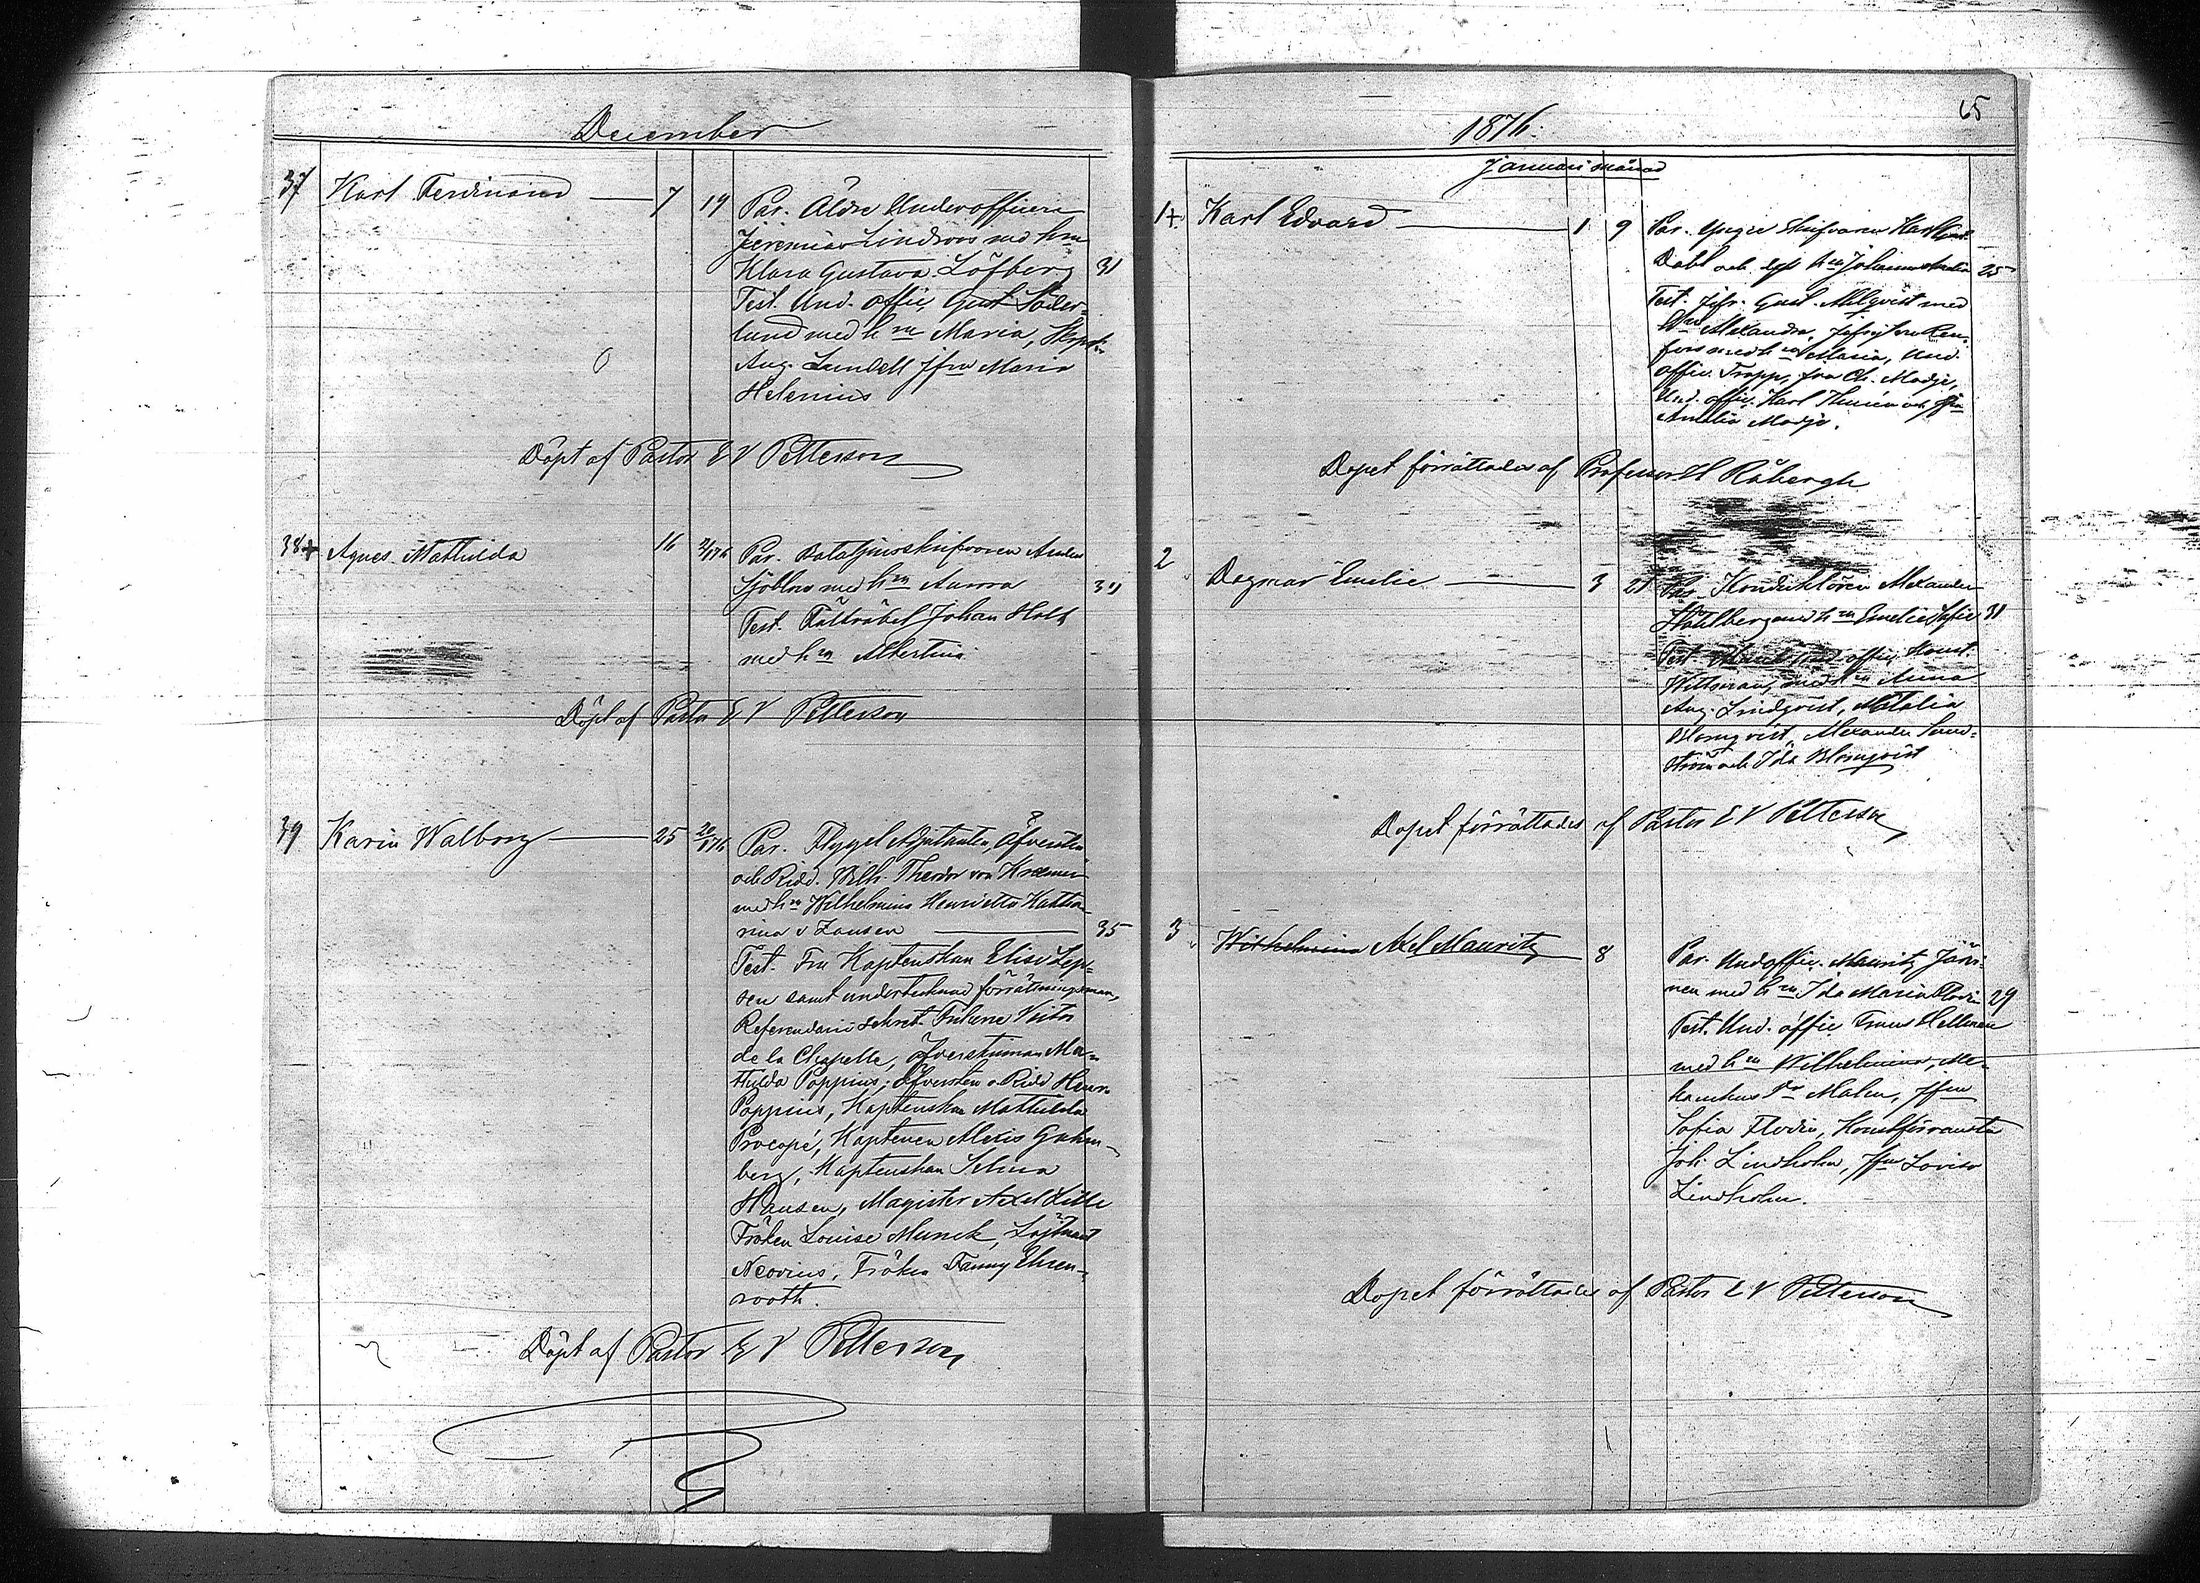 December
37 Karl Ferdinand 7 19 Par. Äldre Underofficern
Jeremias Lindroos med hm
Klara Gustava Löfberg 31
Test. Und. offic. Gust Söder-
lund med h ru Maria,
Aug. Lundell Jfru Maria
Helenius
Döpt af Pastor E V Petterson
38+ Agnes Mathilda 16 Par. Bataljonsskrifvaren
Sjöblom med hru Aurora 30
Test. Fältväbel Johan
med hru Albertina
Döpt af Pastor E V Petterson
39 Karin Walborg 25 Par. Flygel Adjutanten, Öfversten
och Ridd. Wilh. Theodor von Kraemer
med hru Wilhelmina Henrietta Katha-
rina v 35
Test. Fru Kaptenskan Elise
samt undertecknad förrättningsman,
Referendarie Sekret. Friherre Victor
de la Chapelle, Öfverstinnan Ma-
thilda Poppius, Öfversten o Ridd
Poppius, Kaptenskan Mathilda
Procopé, Kaptenen Alexis Gahm-
berg, Kaptenskan Selma
Hansen, Magister Axel Lille
Fröken Louise Munck, Löjtnant
Neovius, Fröken Fanny Ehren-
rooth.
Döpt af Pastor E V Petterson
65
1876.
Januari månad
1+ Karl Edvard 1 9 Par. Yngre Skrifvaren Karl
Dahl och dess hru Johanna 25
Test. Gust. Ahlqvist med
hru Alexandra,
fors med hru Maria, Und.
offic. Trapp, fru Ch. Madje,
Und. offic. Karl och
Amalia Madje.
Dopet förrättades af Professor H Råbergh
2 Dagmar Emelie 3 21 Par. Konduktören Alexander
Ståhlberg med hru Emelie Sofie 31
Test. offic. Konst.
Wittman, med hru Anna
Aug. Lindqvist, Natalia
Blomqvist, Alexander Sund-
ström och Ida Blomqvist
Dopet förrättades af Pastor E V Petterson
3 Wilhelmina Axel Mauritz 8 Par. Und offic. Mauritz Järvi-
nen med hru Ida Maria Flodin 29
Test. Und. offic Frans Hellman
med hru Wilhelmina, Me-
kanikus Malm, Jfru
Sofia Flodin, Konstförvandten
Joh. Lindholm, Jfru Lovisa
Lindholm.
Dopet förrättades af Pastor E V Petterson